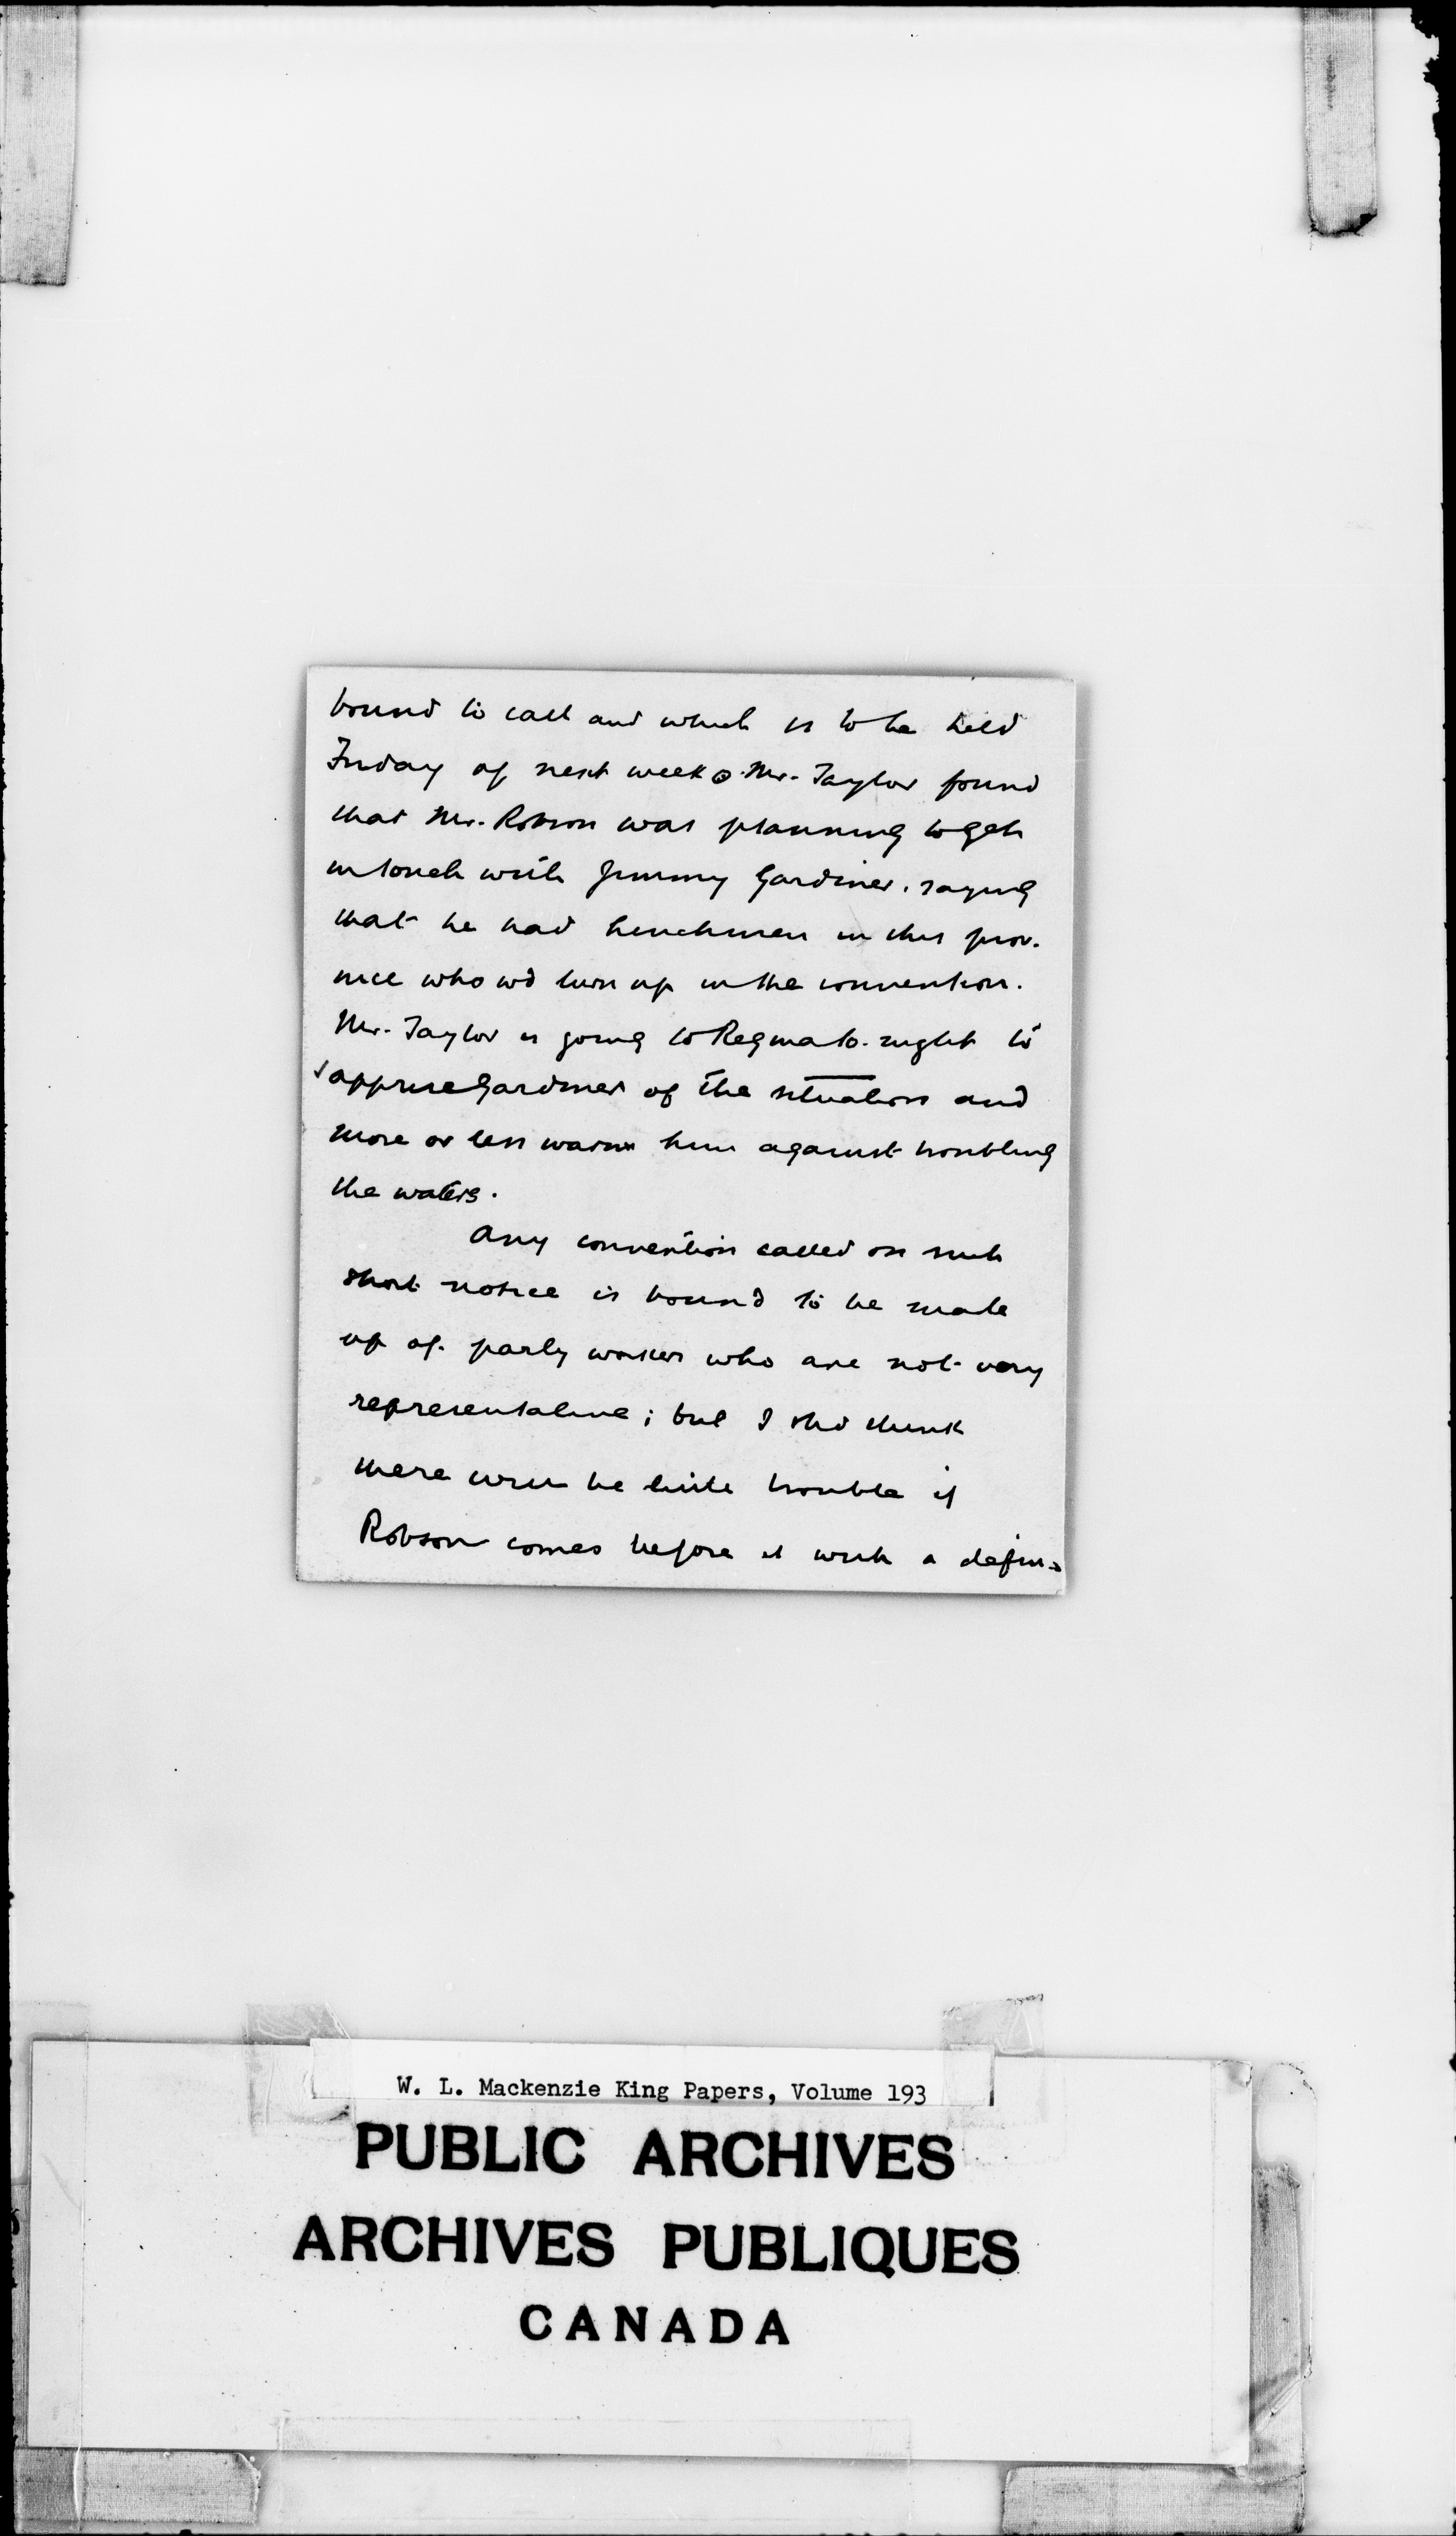 bound to call and which is to be held
Friday of next week. Mr. Taylor found
that Mr. Robson was planning to get
in touch with Jimmy Gardiner, saying
that he had henchmen in this prov-
ince who wd turn up in the convention.
Mr. Taylor is going to Regina to-night to
apprise Gardiner of the situation and
more or less warn him against troubling
the waters.
Any convention called on such
short notice is bound to be made
up of party workers who are not very
representative; but I shd think
there will be little trouble if
Robson comes before it with a defin-
W. L. Mackenzie King Papers, Volume 193
PUBLIC ARCHIVES
ARCHIVES PUBLIQUES
CANADA